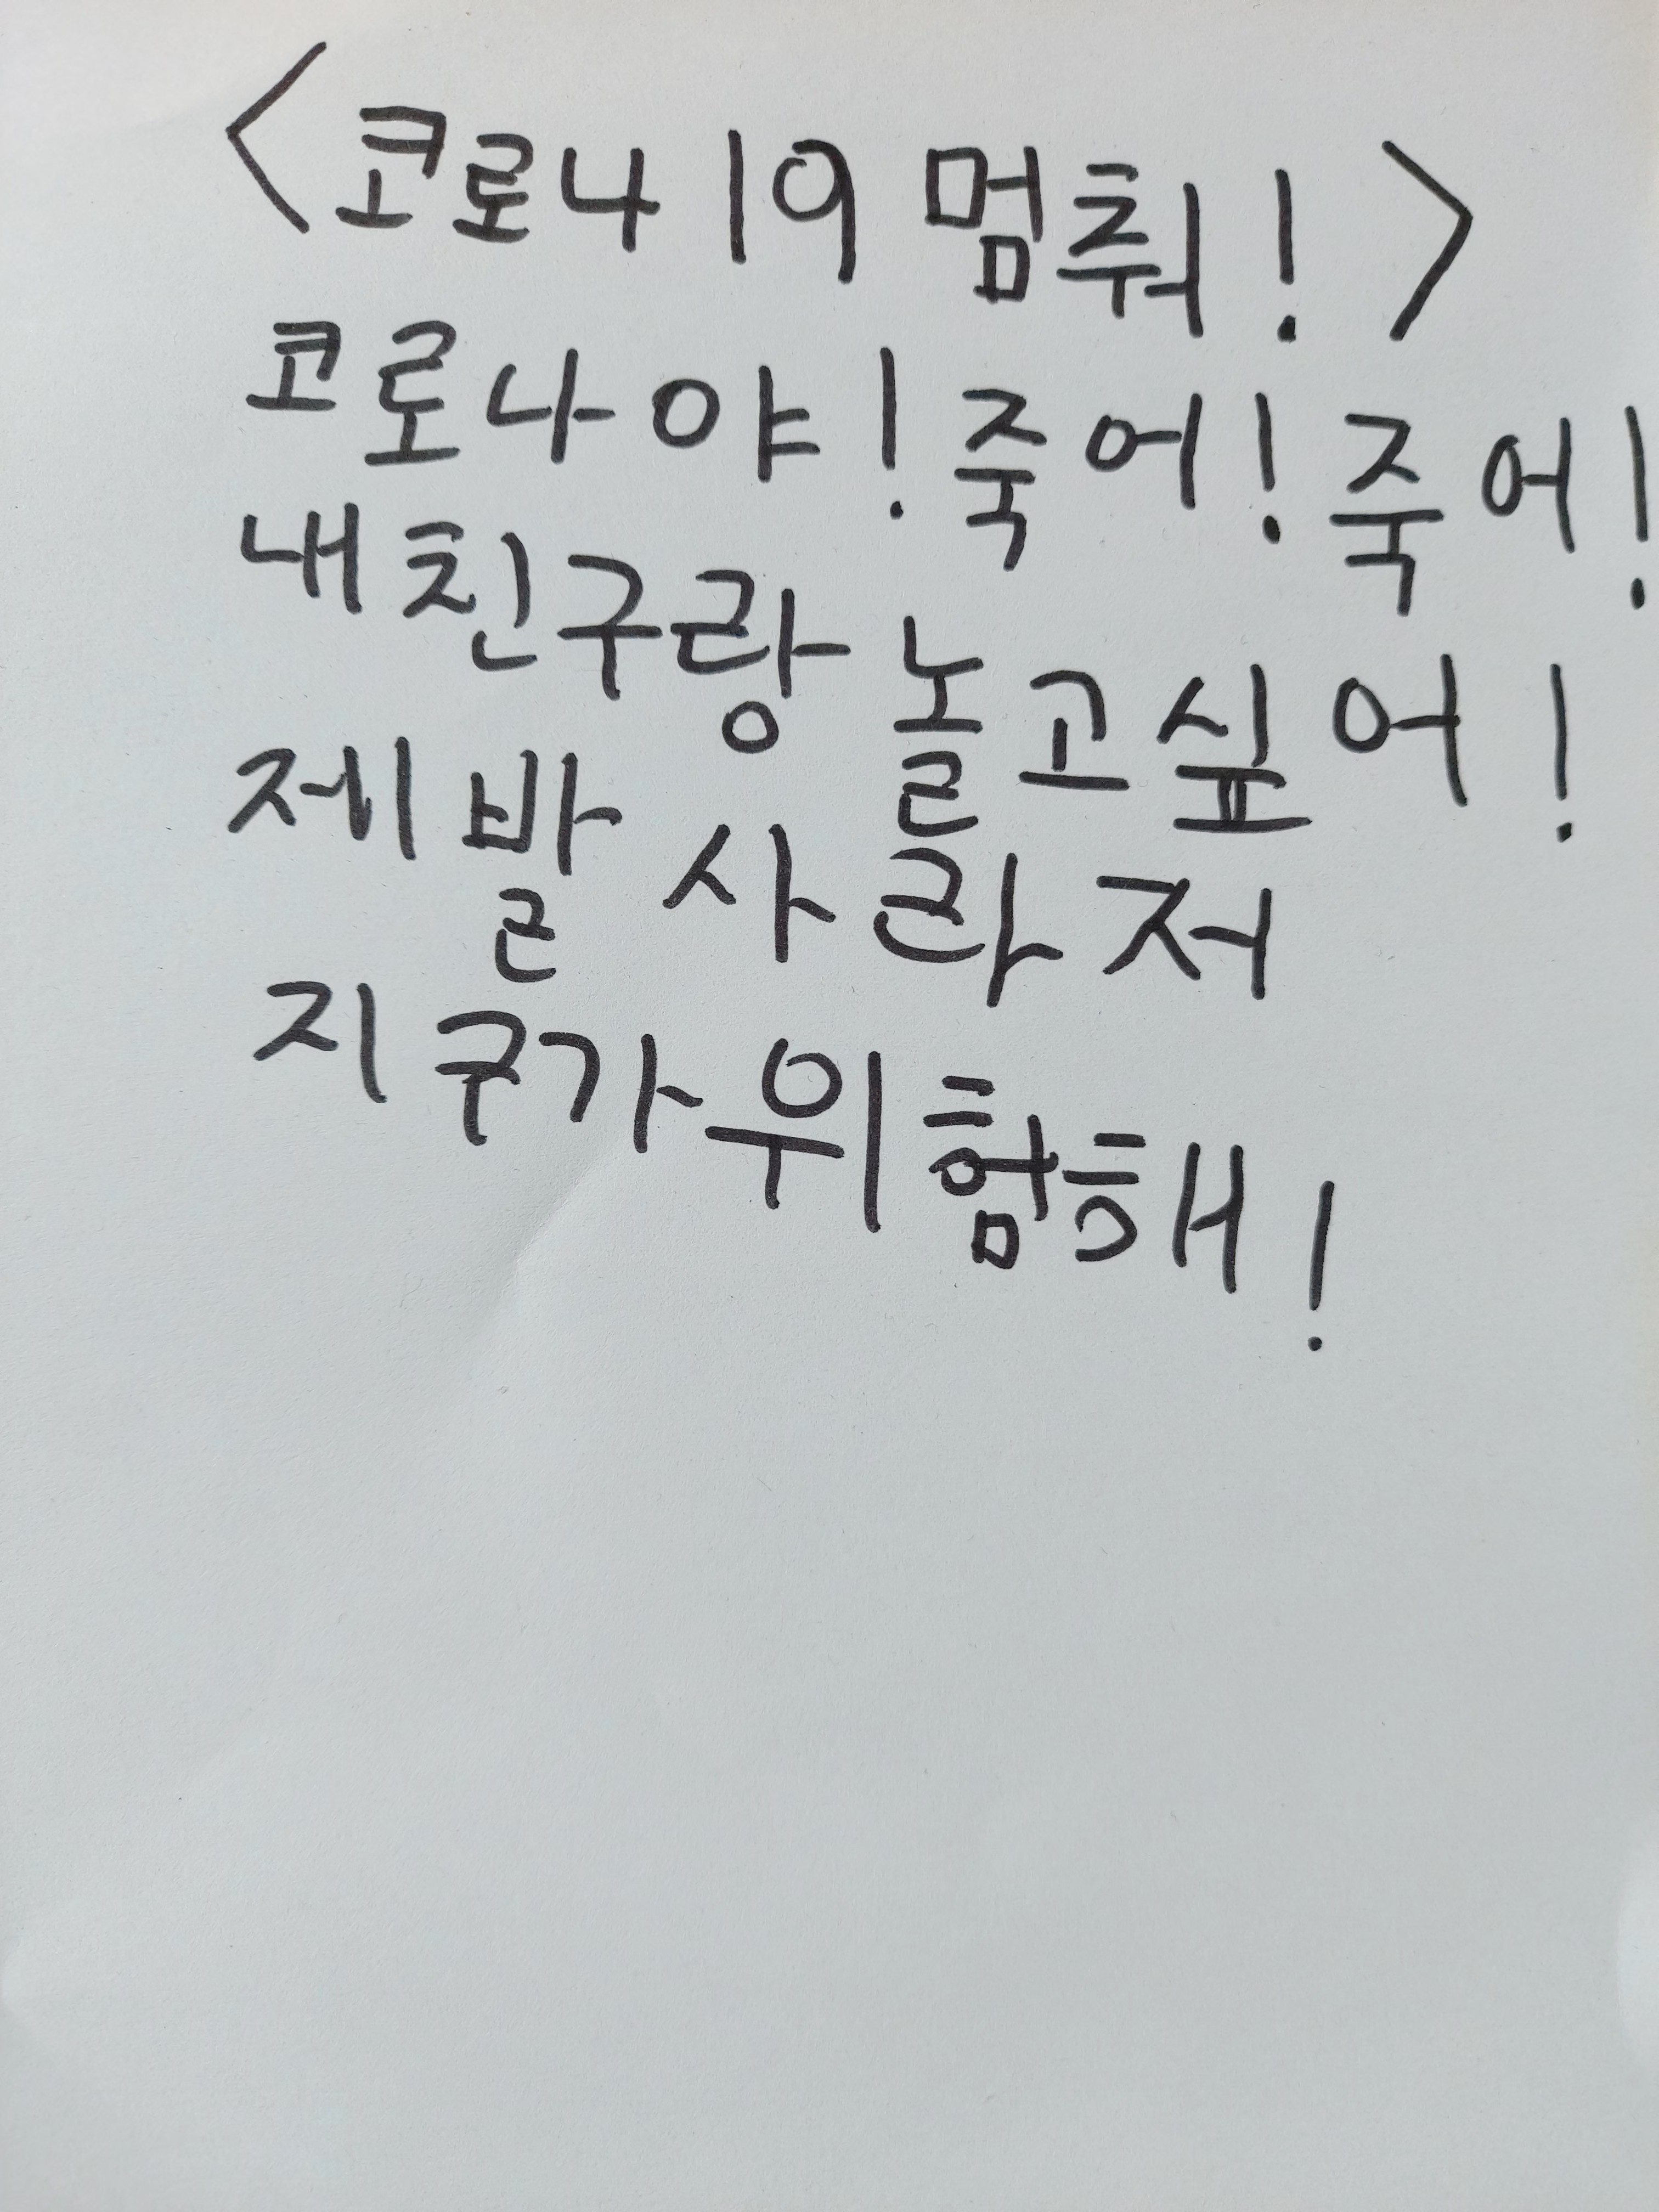 <코로나 19 멈춰!>
코로나야! 죽어! 죽어!
내 친구랑 놀고싶어!
제발 사라저
지구가 위험해!